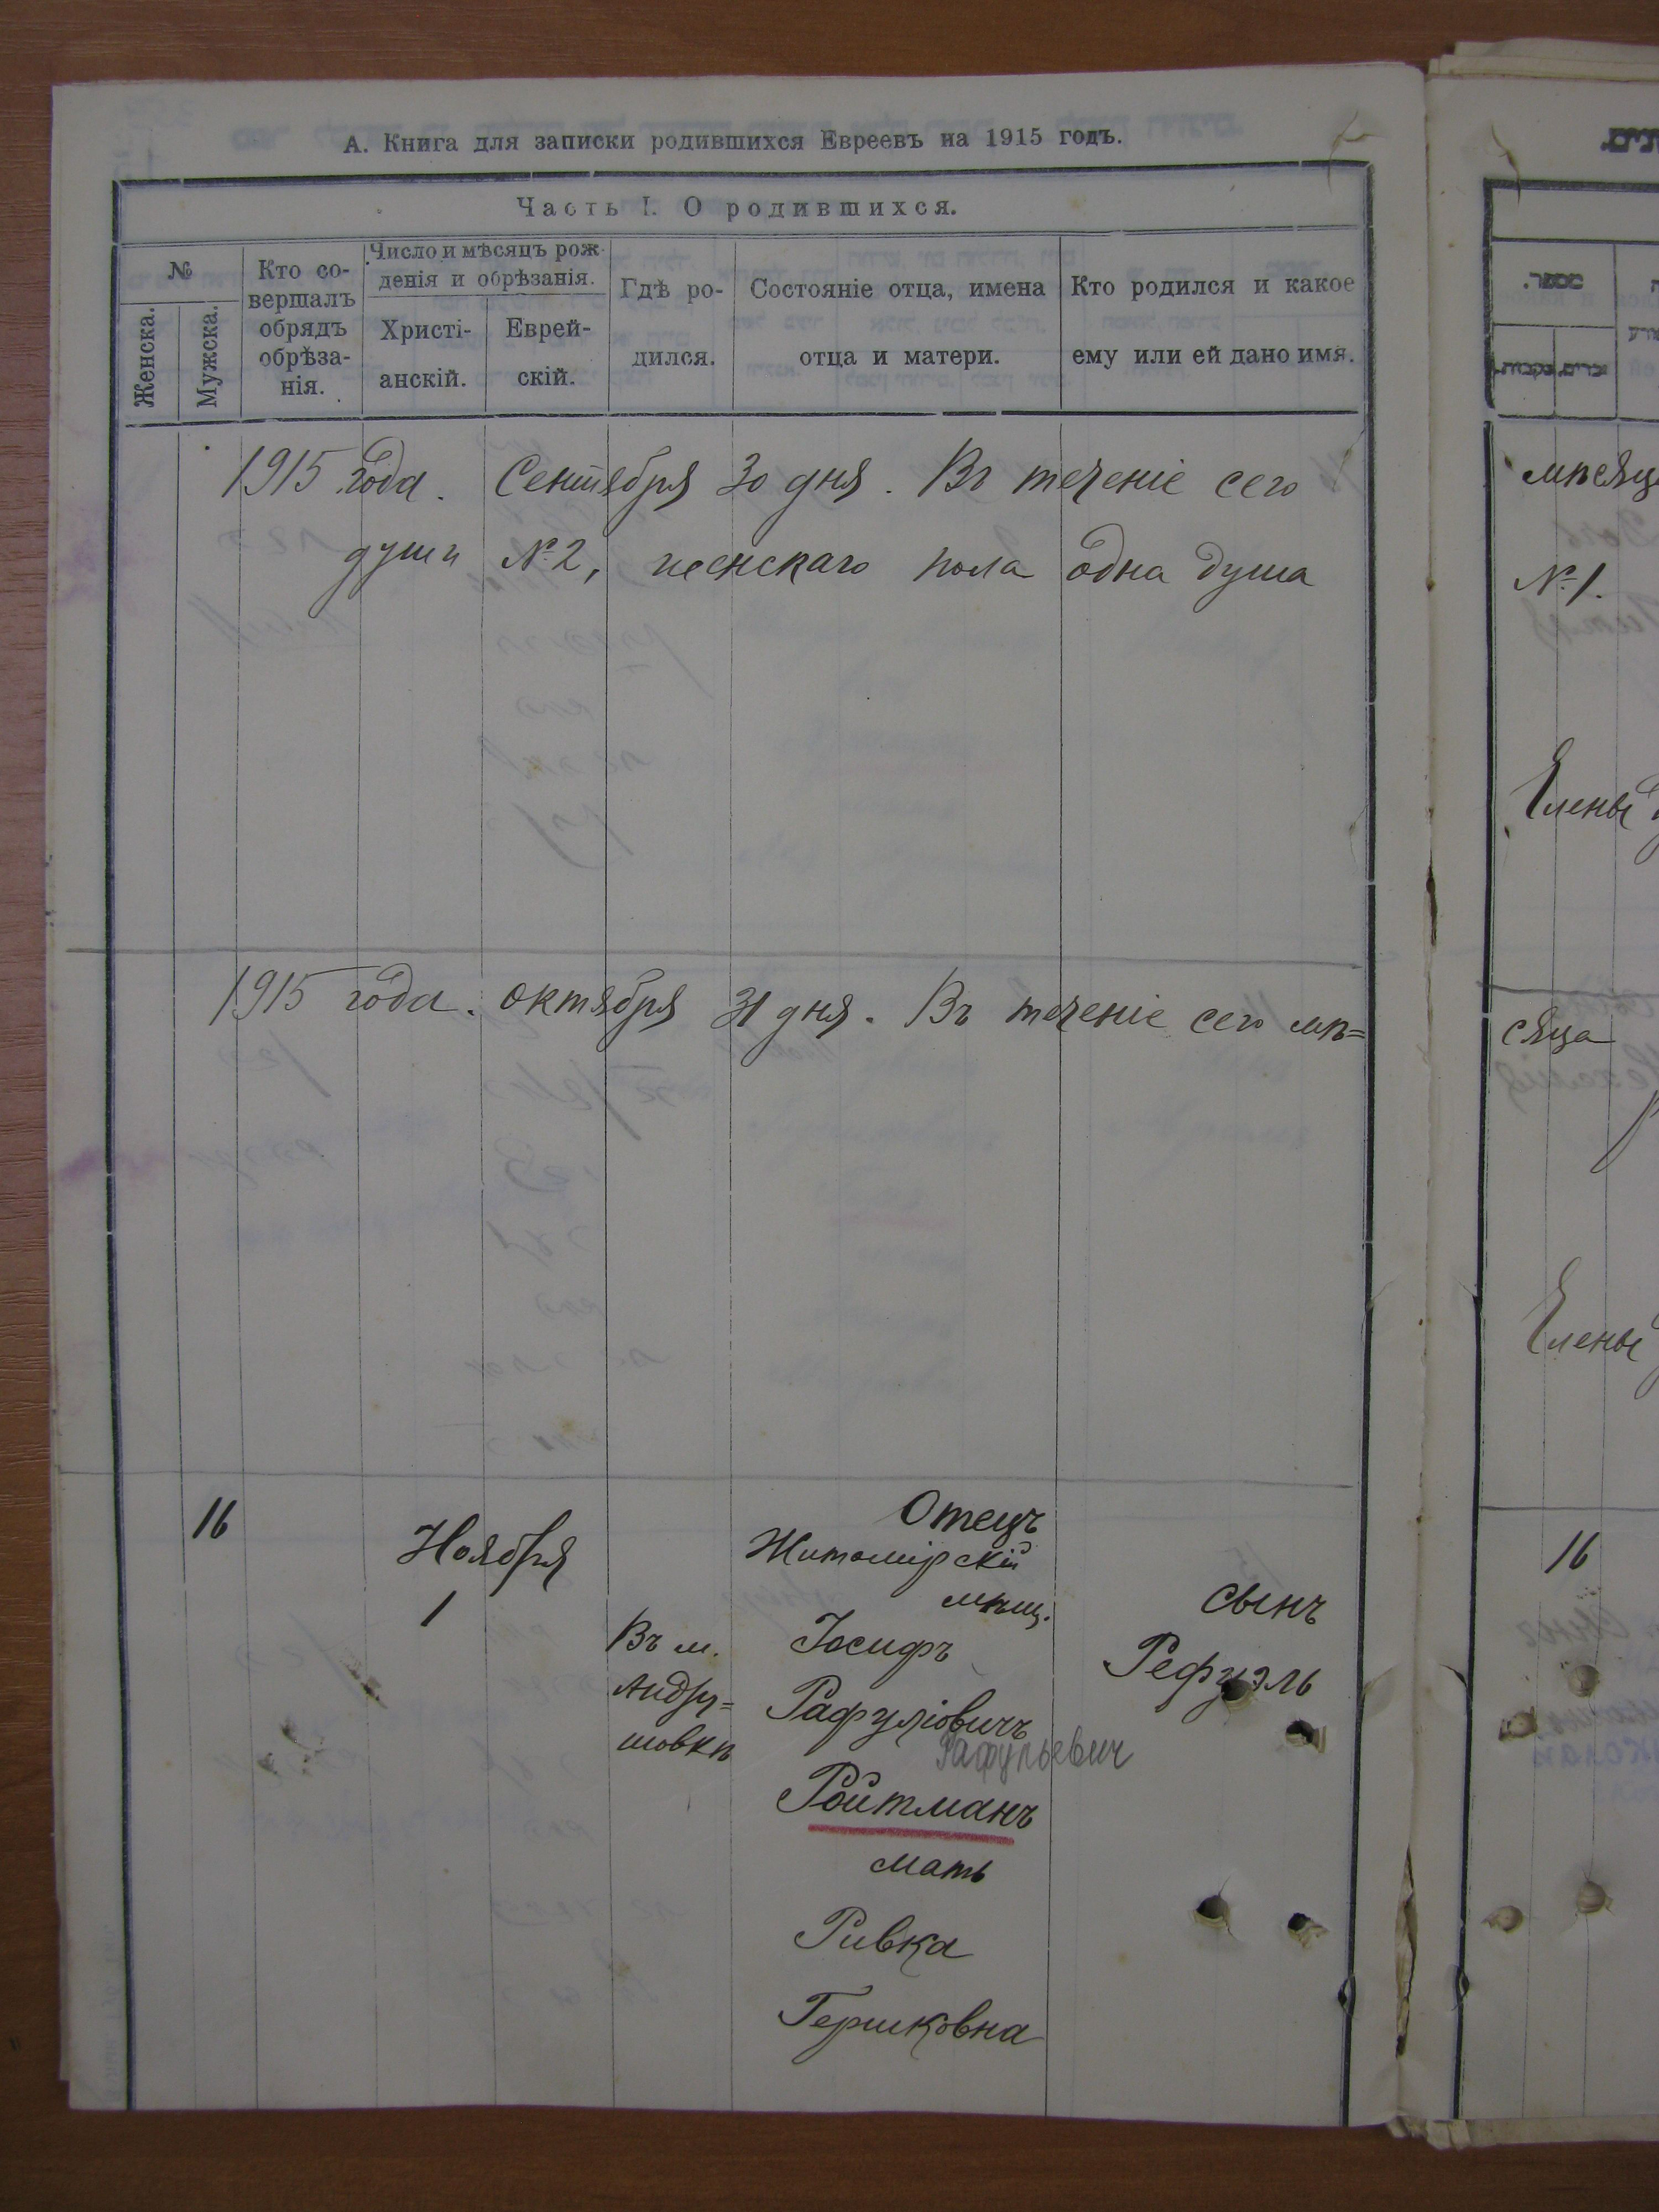 А. Книга для записки родившихся Евреевъ на 1915 годъ.
Часть I. О родившихся.
№
Женска.
Мужска.
Кто со-
вершалъ
обрядъ
обрѣза-
нія.
Число и мѣсяцъ рож
денія и обрѣзанія.
Христі-
анскій.
Еврей-
скій.
Гдѣ ро-
дился.
Состояніе отца, имена
отца и матери.
Кто родился и какое
ему или ей дано имя.
1915 года. Сентября 30 дня. Въ теченіе сего
души №2, женскаго пола одна душа
1915 года. октября 31 дня. Въ теченіе сего мѣ=
16
Ноября
1
Въ м.
Андру=
шовкѣ
Отецъ
Житомірскій
мѣщ.
Іосифъ
Рафуліовичъ
Рафульевич
Ройтманъ
мать
Ривка
Гершковна
сынъ
Рефуэль
מספר.
זכרים.
נקבות.
мѣсяц
№1.
Елены
сяца
Елены
16